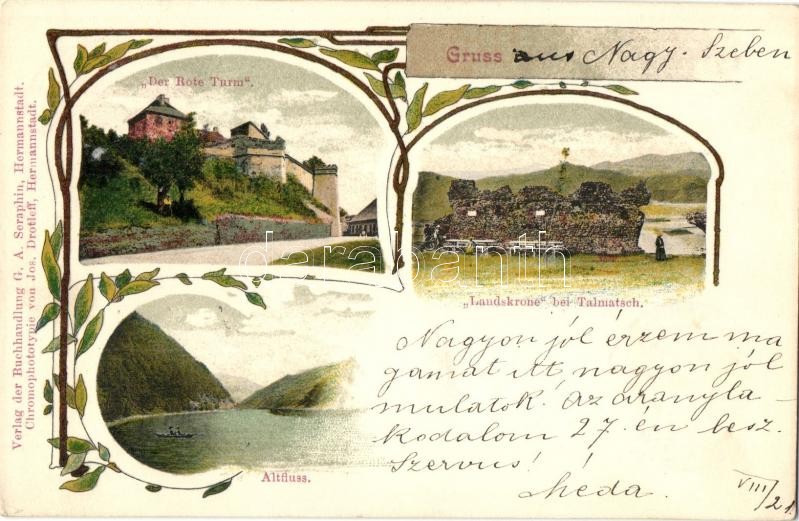 Gruss aus Nagy-Szeben
„Der Rote Turm“.
„Landskrone“ bei Talmatsch.
Altfluss.
Verlag der Buchhandlung G. A. Seraphin, Hermannstadt.
Chromophototypie von Jos. Drotleff, Hermannstadt.
darabanth
Nagyon jól érzem ma
gamat itt, nagyon jól
mulatok. Az aranyla-
kodalom 27-én lesz.
Szervus! !
VIII/21.